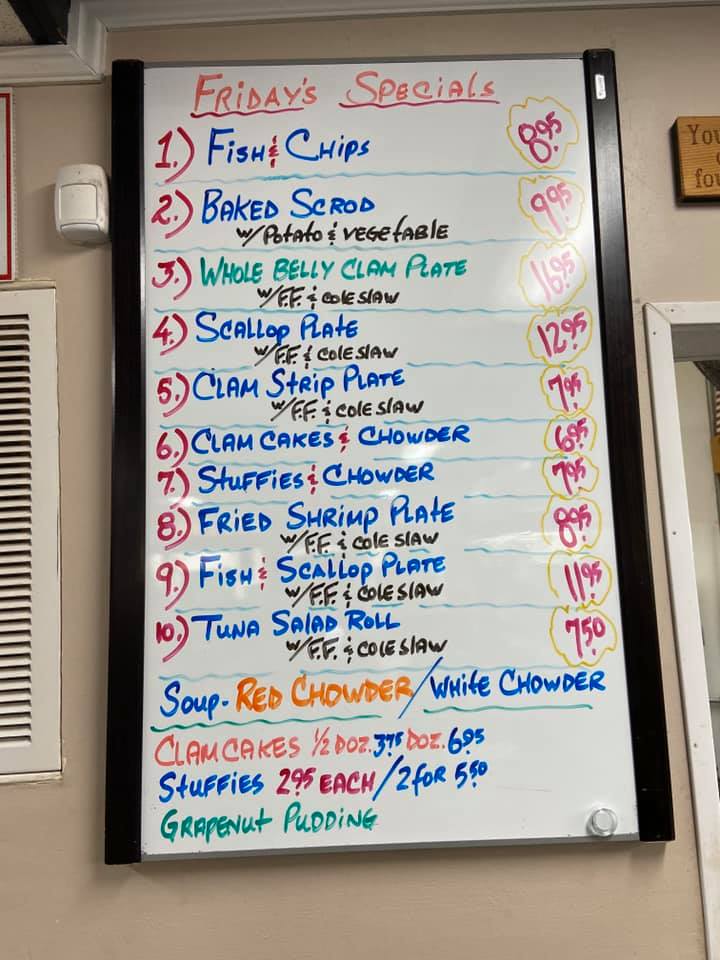 FRiDAY'S SPECiALS
1.) FiSH & CHiPS 8.95
2.) BAKED SCROD 9.95
W/POTATO & VEGETABLE
3.) WHOLE BELLY CLAM PLATE 16.95
W/F.F. & COLE SLAW
4.) SCALLOP PLATE 12.95
W/F.F. & COLE SLAW
5.) CLAM STRiP PLATE 7.95
W/F.F. & COLE SLAW
6.) CLAM CAKES & CHOWDER 6.95
7.) STUFFiES & CHOWDER 7.95
8.) FRiED SHRiMP PLATE 8.95
W/F.F. & COLE SLAW
9.) FiSH & SCALLOP PLATE 11.95
W/F.F. & COLE SLAW
10.) TUNA SALAD ROLL 7.50
W/F.F. & COLE SLAW
SOUP - RED CHOWDER / WHiTE CHOWDER
CLAMCAKES 1/2 DOZ. 3.75 DOZ. 6.95
STUFFiES 2.95 EACH / 2 FOR 5.50
GRAPENUT PUDDiNG
You
fou